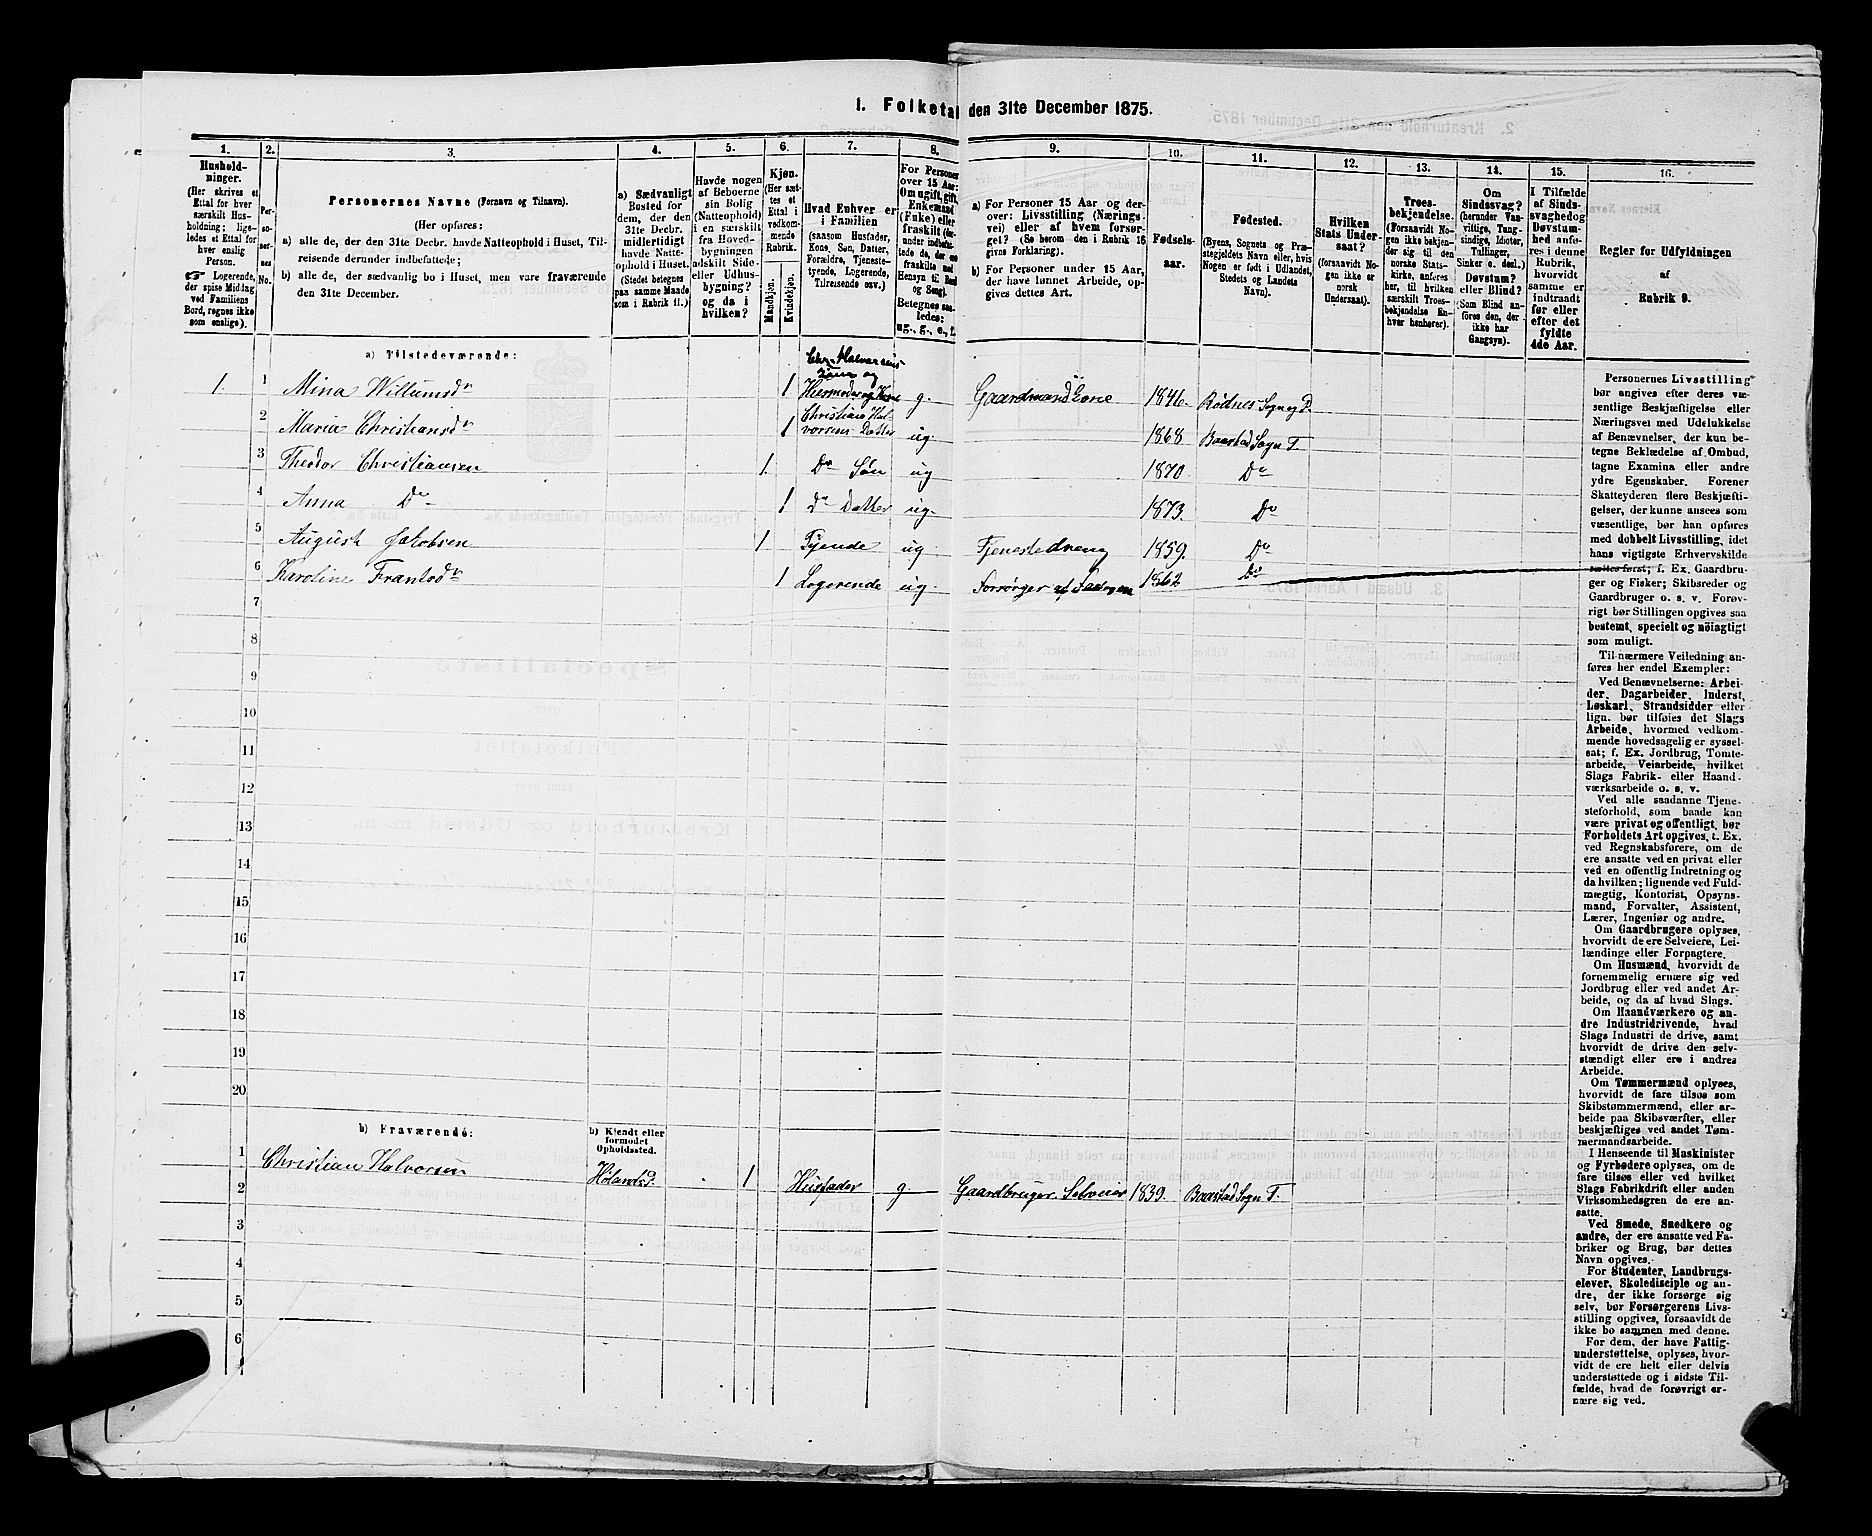 1. Folketal den 31te December 1875.
1.
Hushold-
ninger.
(Her skrives et
Ettal for hver
særskilt Hus-
holdning; lige-
ledes et Ettal for
hver enslig
Person.
☞ Logerende,
der spise Middag
ved Familiens
Bord, regnes ikke
som enslige).
2.
Per-
so-
ner-
nes
No.
3.
Personernes Navne (Fornavn og Tilnavn).
(Her opføres:
a) alle de, der den 31te Decbr. havde Natteophold i Huset, Til-
reisende derunder indbefattede;
b) alle de, der sædvanlig bo i Huset, men vare fraværende
den 31te December.
4.
a) Sædvanligt
Bosted for
dem, der den
31te Decbr.
midlertidigt
havde Natte-
ophold i Huset.
(Stedet betegnes
paa samme Maade
som i Rubrik 11.)
5.
Havde nogen
af Beboerne
sin Bolig
(Natteophold)
i en særskilt
fra Hoved-
bygningen
adskilt Side-
eller Udhus-
bygning?
og da i
hvilken?
6.
Kjøn.
(Her sæt-
tes et
Ettal i
vedkom-
mende
Rubrik.
Mandkjøn.
Kvindekjøn.
7.
Hvad Enhver er
i Familien
(saasom Husfader,
Kone, Søn, Datter,
Forældre, Tjeneste-
tyende, Logerende,
Tilreisende osv.)
8.
For Personer
over 15 Aar:
Om ugift, gift,
Enkemand
(Enke) eller
fraskilt (for-
under indbefat-
tede de, der
ere fraskilte med
Hensyn til Bord
og Seng).
Betegnes saa-
ledes:
ug., g., e., f.
9.
a) For Personer 15 Aar og der-
over: Livsstilling (Nærings-
vei) eller af hvem forsør-
get? (Se herom den i Rubrik 16
givne Forklaring).
b) For Personer under 15 Aar,
der have lønnet Arbeide, op-
gives dettes Art.
10.
Fødsels-
aar.
11.
Fødested.
(Byens, Sognets og Præ-
stegjeldets Navn eller, hvis
Nogen er født i Udlandet,
Stedets og Landets
Navn).
12.
Hvilken
Stats Under-
saat?
(forsaavidt No-
gen ikke er
norsk
Undersaat).
13.
Troes-
bekjendelse.
(Forsaavidt No-
gen ikke bekjen-
der sig til den
norske Stats-
kirke, anføres
her, til hvilken
særskilt Troes-
bekjendelse En-
hver henhører).
14.
Om
Sindssvag?
(herunder Van-
vittige, Tung-
sindige, Idioter,
Tullinger,
Sinker o. desl.)
Døvstum?
eller Blind?
(Som Blind an-
føres den, der
ikke har
Gangsyn).
15.
I Tilfælde
af Sinds-
svaghed og
Døvstum-
hed anfø-
res i denne
Rubrik,
hvorvidt
samme er
indtraadt
før eller
efter det
fyldte
4de Aar.
16.
Regler for Udfyldningen
af
Rubrik 9.
a) Tilstedeværende:
1. 1 Mina Willumsdr 1 Chr. Halvorsens Kone og Husmoder og Kone g. Gaardmandskone 1846. Rødnes Sogn og P.
2 Maria Christiansdr 1 Christian Halvorsens Datter ug. 1868 Baastad Sogn T.
3 Theodor Christiansen 1. Do Søn ug 1870. Do
4 Anna Do 1 Do Datter ug. 1873. Do
5 August Jakobsen 1 Tjende ug. Tjenestedreng 1859. Do
6 Karoline Frantsdr 1 Logerende ug. Forsørger af Faderen 1862 Do
7
8
9
10
11
12
13
14
15
16
17
18
19
20
b) Fraværende:
b) Kjendt eller
formodet
Opholdssted.
1 Christian Halvorsen Hølands P. 1 Husfader g. Gaardbruger Selveier 1839. Baastad Sogn T.
2
3
4
5
6
Personernes Livsstilling
bør angives efter deres væ-
sentlige Beskjæftigelse eller
Næringsvei med Udelukkelse
af Benævnelser, der kun be-
tegne Beklædelse af Ombud,
tagne Examina eller andre
ydre Egenskaber. Forener
Skatteyderen flere Beskjæfti-
gelser, der kunne ansees som
væsentlige, bør han opføres
med dobbelt Livsstilling, idet
hans vigtigste Erhvervskilde
sættes først; f. Ex. Gaardbru-
ger og Fisker; Skibsreder og
Gaardbruger o. s. v. Forøv-
rigt bør Stillingen opgives saa
bestemt, specielt og nøiagtigt
som muligt.
Til nærmere Veiledning an-
føres her endel Exempler:
Ved Benævnelserne: Arbei-
der, Dagarbeider, Inderst,
Løskarl, Strandsidder eller
lign. bør tilføies det Slags
Arbeide, hvormed vedkom-
mende hovedsagelig er syssel-
sat; f. Ex. Jordbrug, Tomte-
arbeide, Veiarbeide, hvilket
Slags Fabrik- eller Haand-
værksarbeide o. s. v.
Ved alle saadanne Tjene-
steforhold, som baade kan
være privat og offentligt, bør
Forholdets Art opgives, t. Ex.
ved Regnskabsførere, om de
ere ansatte ved en privat eller
ved en offentlig Indretning og
da hvilken; lignende ved Fuld-
mægtig, Kontorist, Opsyns-
mand, Forvalter, Assistent,
Lærer, Ingeniør og andre.
Om Gaardbrugere oplyses,
hvorvidt de ere Selveiere, Lei-
lændinge eller Forpagtere.
Om Husmænd, hvorvidt de
fornemmelig ernære sig ved
Jordbrug eller ved andet Ar-
beide, og da af hvad Slags.
Om Haandværkere og an-
dre Industridrivende, hvad
Slags Industri de drive, samt
hvorvidt de drive den selv-
stændigt eller ere i andres
Arbeide.
Om Tømmermænd oplyses,
hvorvidt de fare tilsøs som
Skibstømmermænd, eller ar-
beide paa Skibsværfter, eller
beskjæftiges ved andet Tøm-
mermandsarbeide.
I Henseende til Maskinister
og Fyrbødere oplyses, om de
fare tilsøs eller ved hvilket
Slags Fabrikdrift eller anden
Virksomhedsgren de ere an-
satte.
Ved Smede, Snedkere og
andre, der ere ansatte ved Fa-
briker og Brug, bør dettes
Navn opgives.
For Studenter, Landbrugs-
elever, Skoledisciple og an-
dre, der ikke forsørge sig
selv, bør Forsørgerens Livs-
stilling opgives, forsaavidt de
ikke bo sammen med denne.
For dem, der have Fattig-
understøttelse, oplyses, hvor-
vidt de ere helt eller delvis
understøttede og i sidste Til-
fælde, hvad de forøvrigt er-
nære sig ved.